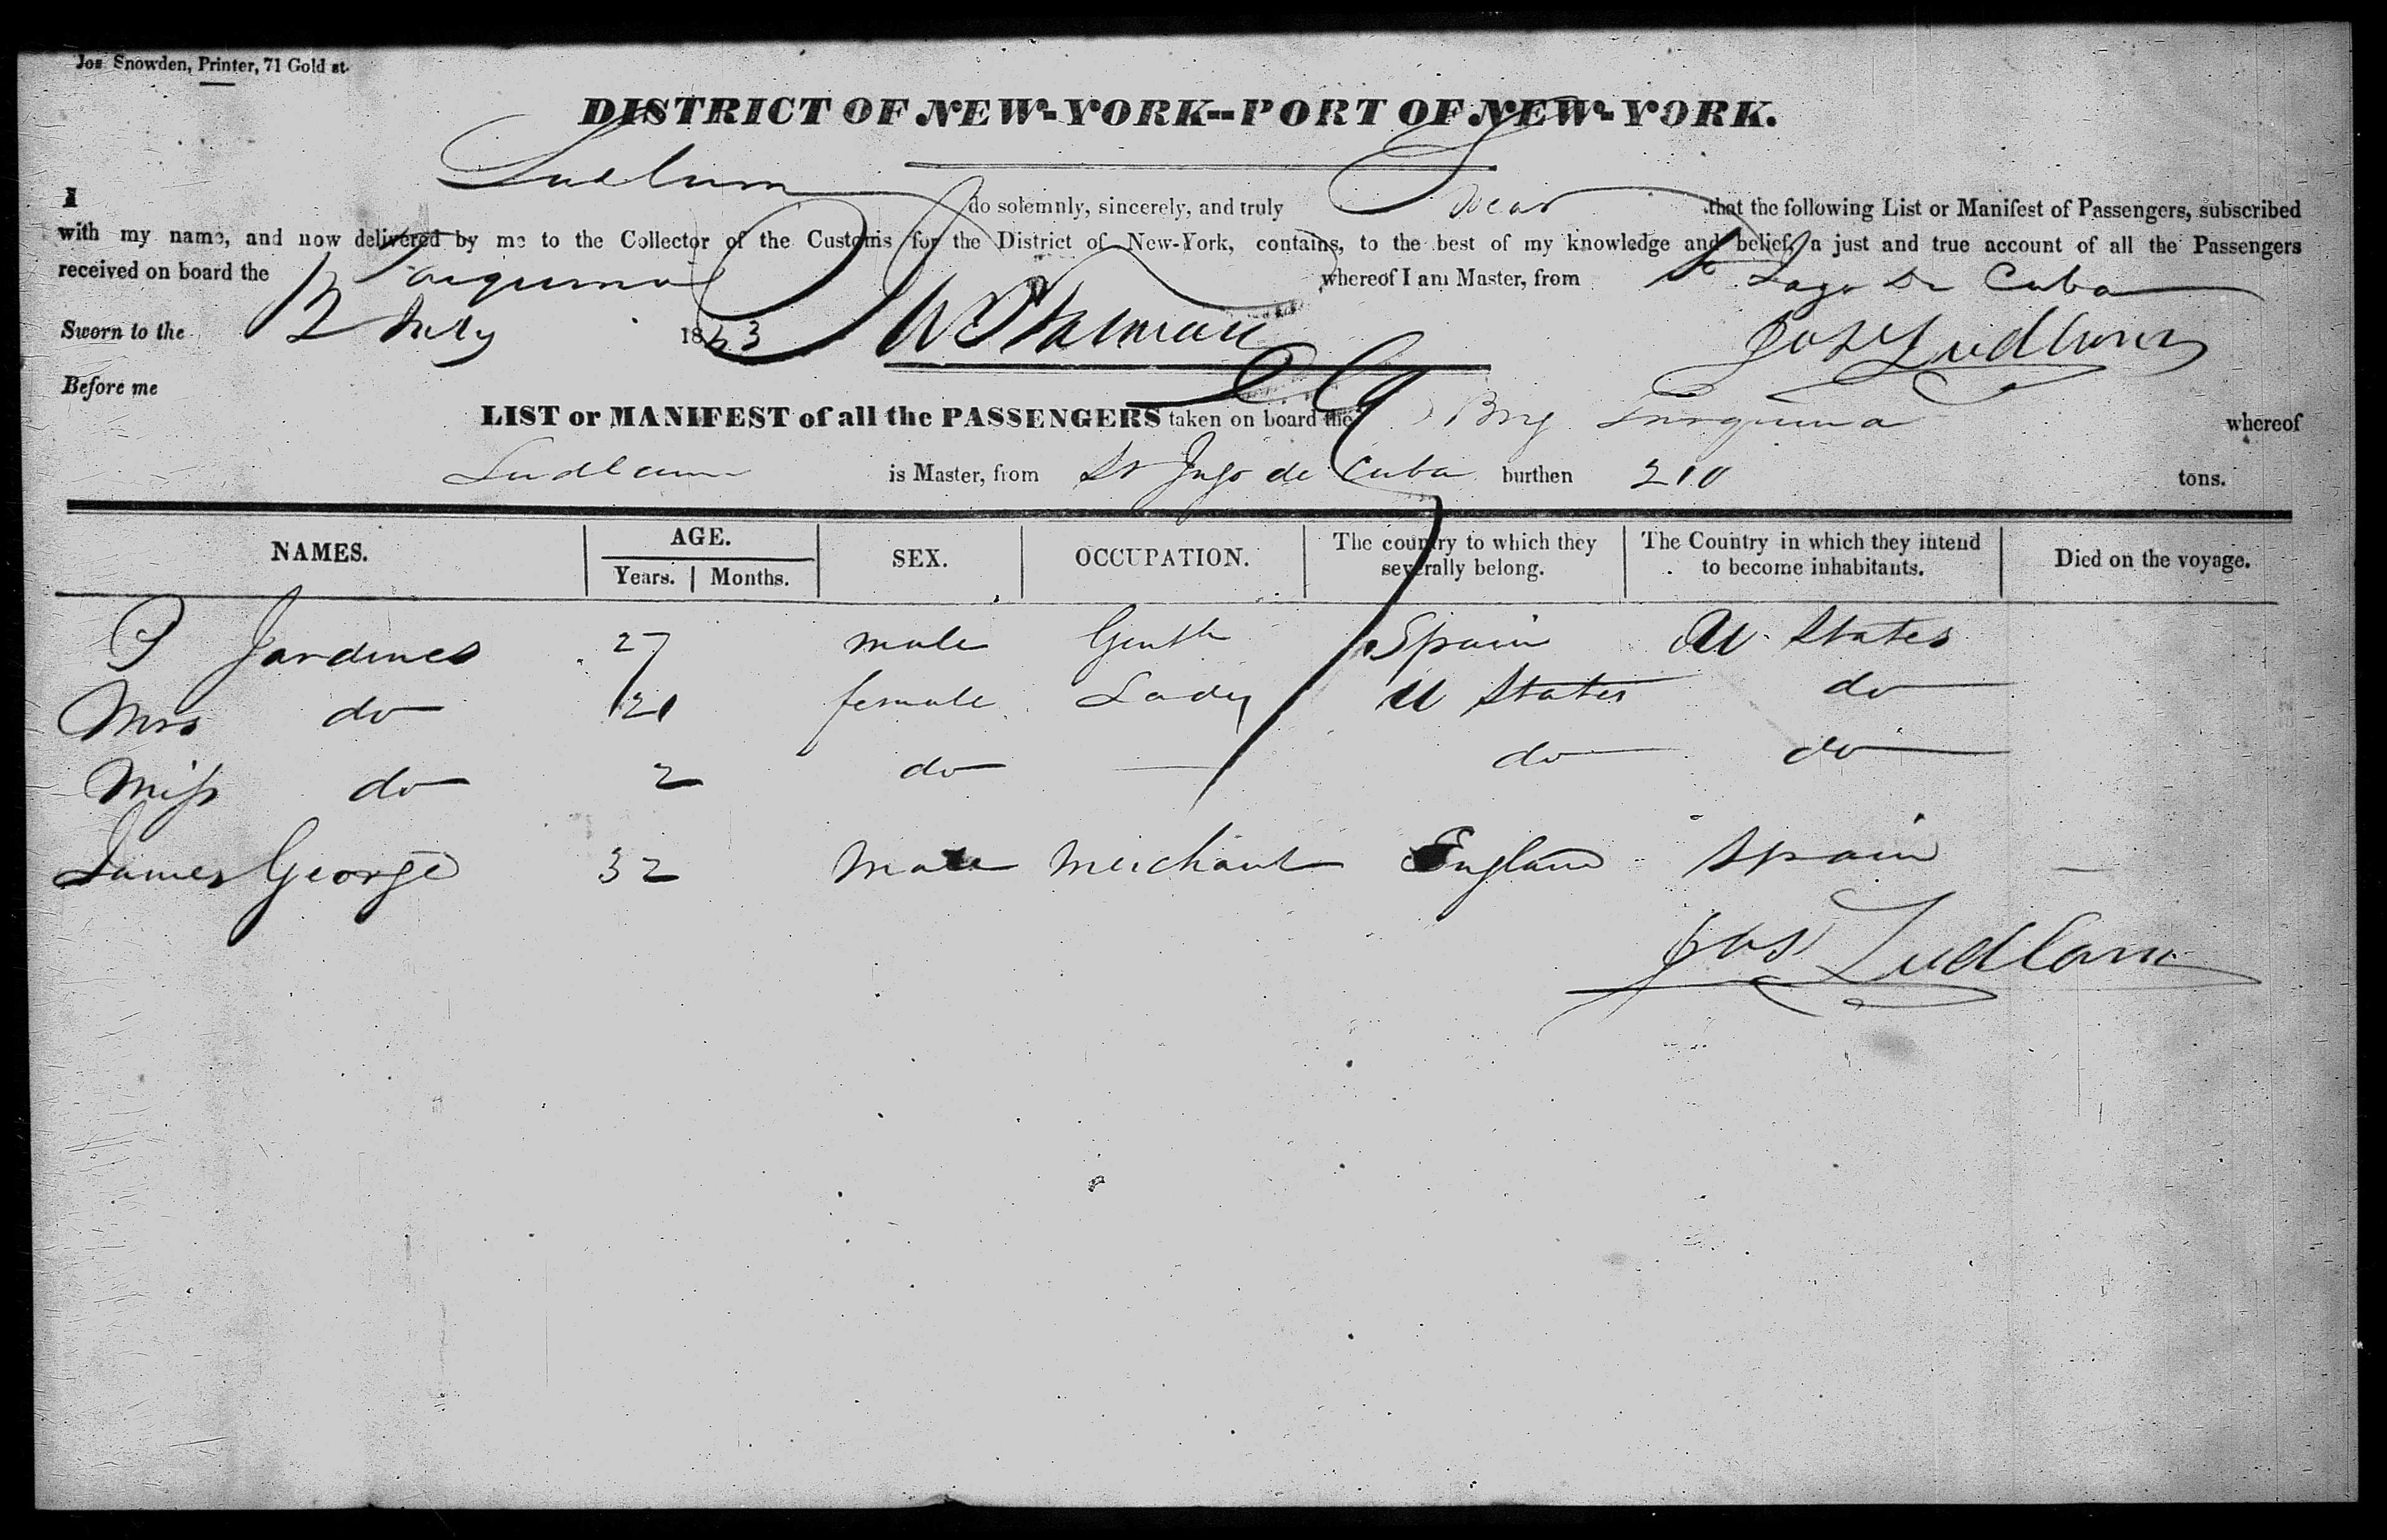 Jos Snowden, Printer, 71 Gold st.
DISTRICT OF NEW-YORK--PORT OF NEW-YORK.
I Ludlum do solemnly, sincerely, and truly Swear that the following List or Manifest of Passengers, subscribed
with my name, and now delivered by me to the Collector of the Customs for the District of New-York, contains, to the best of my knowledge and belief, a just and true account of all the Passengers
received on board the whereof I am Master, from St Iago De Cuba
Sworn to the 12 July 1843 Jos Ludlam
Before me
LIST or MANIFEST of all the PASSENGERS taken on board the Brig whereof
Ludlam is Master, from St Jago de Cuba burthen 210 tons.
NAMES. AGE. Years. Months. SEX. OCCUPATION. The country to which they severally belong. The Country in which they intend to become inhabitants. Died on the voyage.
P Jardines 27 male Gentle Spain U States
Mrs do 21 female Lady U States do
Miss do 2 do — do do
James George 32 Male Merchant England Spain —
Jos Ludlam